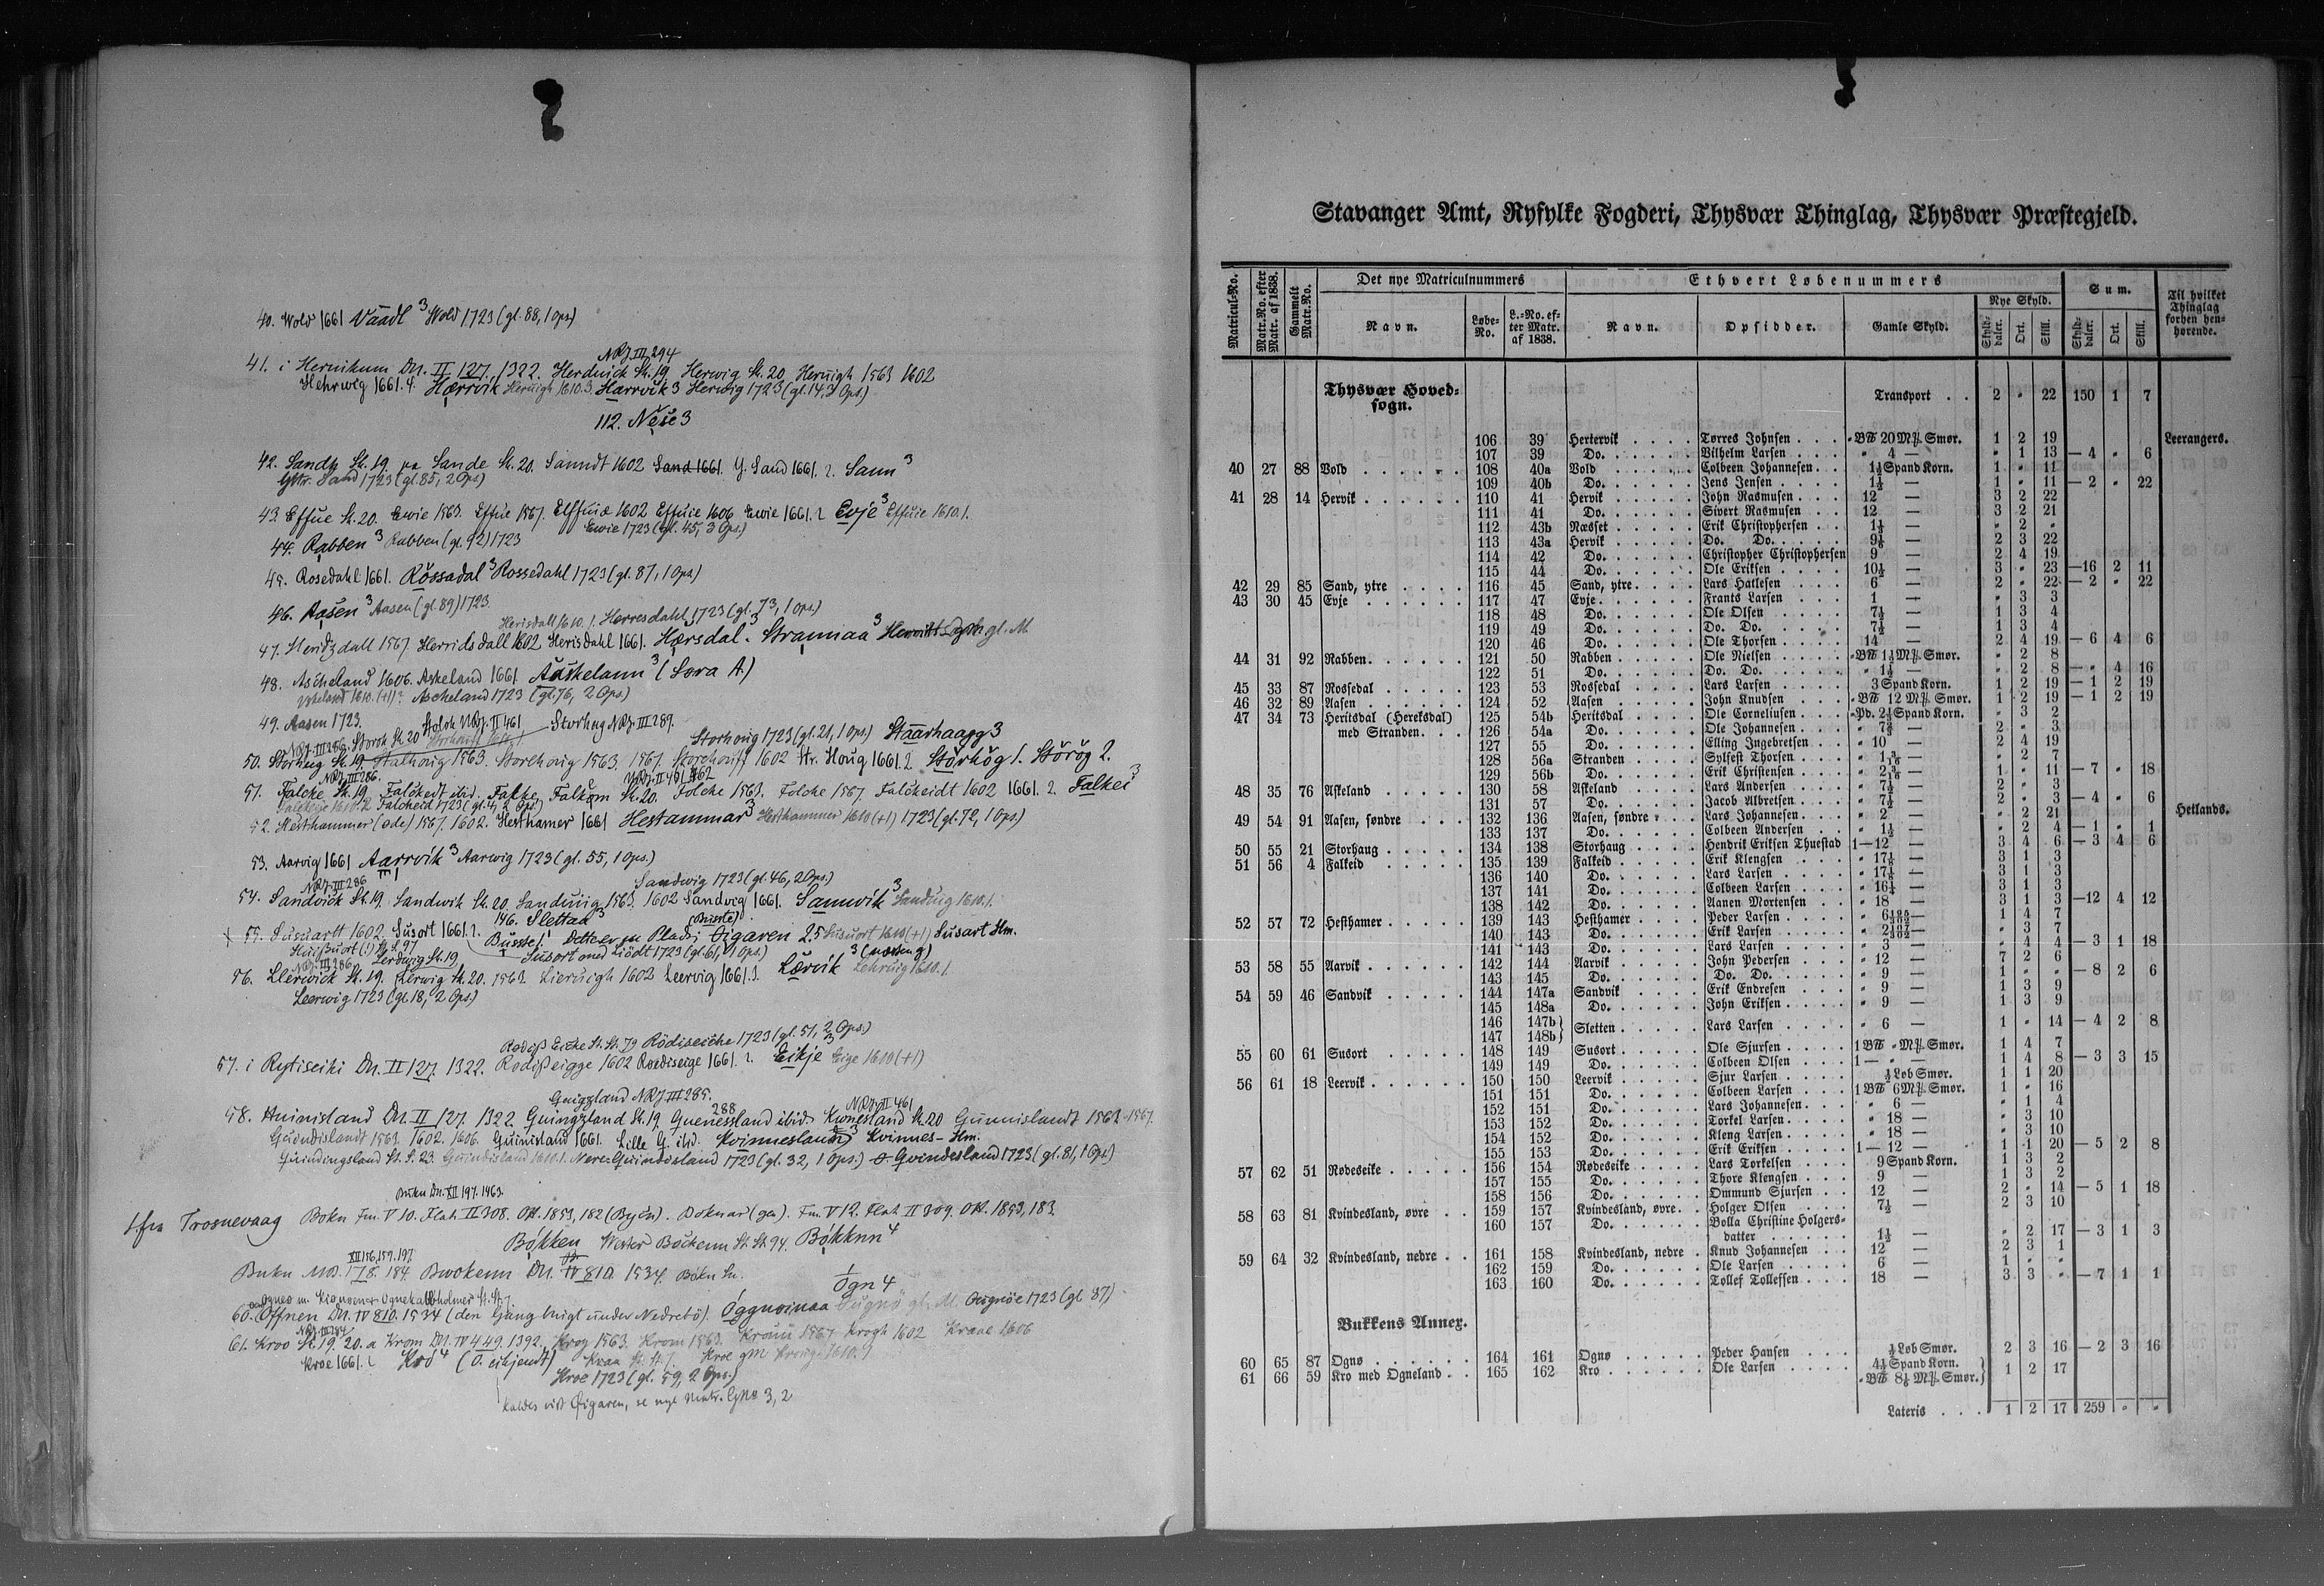 40. Wold 1661 Vaadl 3 Wold 1723 (gl. 88, 1 Ops)
NRJ. III 294
41. i Hervikum Dn. II 127. 1322. Herduick St. 19 Herwig St. 20 Heruigh 1563 1602
Hehrweg 1661. 4. Hærrvik Heruigh 1610.3. Harrvik 3 Herwig 1723 (gl. 14, 3 Ops.)
112. Nese 3
42. Sandh St. 19. pa Sande St. 20. Sanndt 1602 Sand 1661. Y. Sand 1661. 2. Sann 3
Yttr. Sand 1723 (gl. 85, 2 Ops)
43. Effue St. 20. Ewie 1563. Effue 1567. Elffuiæ 1602 Effuie 1606 Ewie 1661. 2 Evje 3 Effuie 1610. 1.
Ewie 1723 (gl. 45, 3 Ops.)
44. Rabben 3 Rabben (gl. 92) 1723
45. Rosedahl 1661. Rössadal 3 Rossedahl 1723 (gl. 87, 1 Ops)
46. Aasen 3 Aasen (gl. 89) 1723.
Herisdall 1610. 1. Herresdahl 1723 (gl. 73, 1 Ops.)
47. Heridzdall 1567. Herridsdall 1602 Herisdahl 1661. Hærsdal 3. Strannaa 3 gl. M.
48. Ascheland 1606. Askeland 1661 Aaskelann 3 (Lora A.)
1610. (+1)? Ascheland 1723 (gl. 76, 2 Ops.)
49. Aasen 1723.
NRJ. II 461 Storhug NRJ. III 289.
NRJ. III 286. Storoh St. 20 Storhoug 1723 (gl. 21, 1 Ops) Staarhaagg 3
50. Storheug St. 19. Stalhouig 1563. Storlhouig 1563. 1567. Storchouff 1602 Str. Houg 1661. 2 Störhög 1. Störög 2.
NRJ. III 286. NRJ. II 461, 462
51. Falcke St. 19. Falckedt ibid. Falke, Falkom St. 20. Folche 1563. Folche 1567. Falckeidt 1602 1661. 2. Falkei 3
Falcheid 1723 (gl. 4, 2 Ops)
52. Hesthammer (øde) 1567. 1602. Hesthamer 1661 Hestammar 3 Hesthammer 1610 (+1) 1723 (gl. 72, 1 Ops)
53. Aarvig 1661 Aarrvik 3 Aarwig 1723 (gl. 55, 1 Ops.)
NRJ. III 286 Sandwig 1723 (gl. 46, 2 Ops.)
54. Sandvick St. 19. Sandwik St. 20. Sanduig 1563. 1602 Sandvig 1661. Sannvik 3 Sanduig 1610. 1.
146. Slettan 3
55. Susuartt 1602. Susort 1661. 2. Busste 1. Dette er en Plads; Øigaren 2.5 Susuort 1610 (+1) Susart Hm.
(!) St. S. 97 Susort med Liödt 1723 (gl. 61, 1 Ops.)
NRJ. III 286. Lerdwig St. 19 3 (næsten g)
56. Llerwick St. 19. Lerwig St. 20. 1563. Lieruigh 1602 Leervig 1661. 3. Lærvik Lehruig 1610. 1.
Leerwig 1723 (gl. 18, 2 Ops.)
Rödiseiche 1723 (gl. 51, 2 Ops.)
57. i Rytiseiki Dn. II 127. 1322. Rodisseigge 1602 Roediseige 1661. 2. Eikje 3 Eige 1610 (+1)
Guigzland NRJ. III 285.
288 NRJ. II 461
58. Huinisland Dn. II 127. 1322. Guingzland St. 19, Guenessland ibid. Kwnesland St. 20 Gunnislandt 1563 1567.
Guindislandt 1563. 1602. 1606. Guinisland 1661. Lille G. ibid. Kvinnesland 3 Kvinnes- Hm.
Guindingsland St. S. 23. Guindisland 1610. 1. Nere Guindisland 1723 (gl. 32, 1 Ops.) Ø- Gvindesland 1723 (gl. 81, 1 Ops)
Bukn Dn. XII 197. 1463.
fra Trosnevaag Bokn Fm. V 10. Flat. II 308. OH. 1853, 182 (Byen). Boknar (gen). Fm. V 12. Flat. II 309. OH. 1853, 183.
Bökken Wester Bockenn St. St. 94. Bökknn 4
XII 156, 159, 197.
Bukn MD. 178. 184. Bwokenn Dn. IV 810. 1534. Bokn Sn.
Ögn 4
60. Offnen Dn. IV 810. 1534 (den Gang bugt under Nedrebö). Öggnoinaa gl. M. Ougnöe 1723 (gl 87)
NRJ. III 284
61. Kroo St. 19. 20. a Krom Dn. IV 449. 1392. Kroy 1563. Krom 1563. 1567 Krogh 1602 Kraae 1606
Kroe 1661. 2 Kro 4 (O. eihjendt) Kraa St. St. Kroe gM
Kroe 1723 (gl. 59, 2 Ops.)
kaldes vist Øigaren, se nyt Matr. GNo 3, 2
Stavanger Amt, Ryfylke Fogderi, Thysvær Thinglag, Thysvær Præstegjeld.
Matricul-No. Matr.No. efter Matr. af 1838. Gammelt Matr.No. Det nye Matriculnummers Ethvert Løbenummers Sum. Til hvilket Thinglag forhen henhørende.
Navn. Løbe-No. L.-No. efter Matr. af 1838. Navn. Opsidder. Gamle Skyld. Nye Skyld. Skylddaler. Ort. Skill. Skylddaler. Ort. Skill.
Thysvær Hoved-sogn. Transport . . 2 " 22 150 1 7
106 39 Hertervik . . . . Torres Johnsen . . . "B℔ 20 M℔ Smør. 1 2 19 Leerangers.
107 39 Do. . . . . . Vilhelm Larsen . . . " 4 — " 1 13 — 4 " 6
40 27 88 Vold . . . . . . 108 40a Vold . . . . . Tolbeen Johannesen . . 1½ Spand Korn. 1 " 11
109 40b Do. . . . . . Jens Jensen . . . . 1½ — 1 " 11 — 2 " 22
41 28 14 Hervik . . . . . . 110 41 Hervik . . . . . John Rasmusen . . . 12 — 3 2 22
111 41 Do. . . . . . Sivert Rasmusen . . 12 — 3 2 21
112 43b Næsset . . . . . Erik Christophersen . . 1½ — " 2 "
113 43a Hervik . . . . . Do. Do. . . . . 9⅛ — 2 3 22
114 42 Do. . . . . . Christopher Christophersen 9 — 2 4 19
115 44 Do. . . . . . Ole Eriksen . . . . 10½ — 3 " 23 —16 2 11
42 29 85 Sand, ytre . . . . 116 45 Sand, ytre . . . . Lars Hatlesen . . . 6 — 2 " 22 — 2 " 22
43 30 45 Evje . . . . . . 117 47 Evje . . . . . . Frants Larsen . . . 1 — " 3 3
118 48 Do. . . . . . Ole Olsen . . . . 7½ — 1 3 4
119 49 Do. . . . . . Do. Do. . . . . 7½ — 1 3 4
120 46 Do. . . . . . Ole Thorsen . . . . 14 — 2 4 19 — 6 4 6
44 31 92 Rabben . . . . . 121 50 Rabben . . . . . Ole Nielsen . . . . "B℔ 1½ M℔ Smør. " 2 8
122 51 Do. . . . . . Do. Do. . . . . " 1½ — " 2 8 — " 4 16
45 33 87 Rossedal . . . . . 123 53 Rossedal . . . . Lars Larsen . . . . 3 Spand Korn. 1 2 19 — 1 2 19
46 32 89 Aasen . . . . . . 124 52 Aasen . . . . . John Knudsen . . . "B℔ 12 M℔ Smør. 1 2 19 — 1 2 19
47 34 73 Heritsdal (Hereksdal) 125 54b Heritsdal . . . . Ole Corneliusen . . . "Pd. 2¼ Spand Korn. " 3 2
med Stranden . . . 126 54a Do. . . . . . Ole Johannesen . . . " 7¾ — 2 " 3
127 55 Do. . . . . . Elling Ingebretsen . . " 10 — 2 4 19
128 56a Stranden . . . . Sylfest Thorsen . . . " 1 3/16 — " 2 7
129 56b Do. . . . . . Erik Christensen . . . " 2 3/16 — 1 " 11 — 7 " 18
48 35 76 Askeland . . . . . 130 58 Askeland . . . . Lars Andersen . . . " 7½ — 2 " 3
131 57 Do. . . . . . Jacob Albretsen . . . " 7½ — 2 " 3 — 4 " 6
49 54 91 Aasen, søndre . . . 132 136 Aasen, søndre . . . Lars Johannesen . . . " 2 — " 2 21 Hetlands.
133 137 Do. . . . . . Tolbeen Andersen . . " 1½ — " 2 4 — 1 " 1
50 55 21 Storhaug . . . . . 134 138 Storhaug . . . . Hendrik Eriksen Thuestad 1—12 — 3 4 6 — 3 4 6
51 56 4 Falkeid . . . . . 135 139 Falkeid . . . . . Erik Klengsen . . . " 17½ — 3 1 3
136 140 Do. . . . . . Lars Larsen . . . . " 17½ — 3 1 3
137 141 Do. . . . . . Tolbeen Larsen . . . " 16¼ — 3 1 3
138 142 Do. . . . . . Aanen Mortensen . . " 18 — 3 1 3 —12 4 12
52 57 72 Hesthamer . . . . . 139 143 Hesthamer . . . . Peder Larsen . . . . " 6 195/302 — 1 4 7
140 143 Do. . . . . . Erik Larsen . . . . " 2 107/302 — " 3 7
141 143 Do. . . . . . Lars Larsen . . . . " 3 — " 4 4 — 3 1 18
53 58 55 Aarvik . . . . . . 142 144 Aarvik . . . . . John Pedersen . . . " 12 — 7 2 6
143 145 Do. . . . . . Do. Do. . . . . " 9 — 1 " " — 8 2 6
54 59 46 Sandvik . . . . . 144 147a Sandvik . . . . . Erik Endresen . . . " 9 — 1 3 9
145 148a Do. . . . . . John Eriksen . . . . " 9 — 1 3 9
146 147b} Sletten . . . . . Lars Larsen . . . . " 6 — 1 " 14 — 4 2 8
147 148b}
55 60 61 Susort . . . . . 148 149 Susort . . . . . Ole Sjursen . . . . 1 B℔ " M℔ Smør. 1 4 7
149 149 Do. . . . . . Tolbeen Olsen . . . 1 — " — 1 4 8 — 3 3 15
56 61 18 Leervik . . . . . . 150 150 Leervik . . . . . Sjur Larsen . . . . ½ Løb Smør. 1 1 20
151 151 Do. . . . . . Tolbeen Larsen . . . 1 B℔ 6 M℔ Smør. 1 " 16
152 151 Do. . . . . . Lars Johannesen . . . " 6 — " 1 4
153 152 Do. . . . . . Torkel Larsen . . . . " 18 — " 3 10
154 152 Do. . . . . . Kleng Larsen . . . . " 18 — " 3 10
155 153 Do. . . . . . Erik Eriksen . . . . 1 — 12 — 1 1 20 — 5 2 8
57 62 51 Rødeseike . . . . . 156 154 Rødeseike . . . . Lars Torkelsen . . . 9 Spand Korn. 1 3 2
157 155 Do. . . . . . Thore Klengsen . . . 9 — 1 3 2
158 156 Do. . . . . . Ommund Sjursen . . 12 — 2 " 14 — 5 1 18
58 63 81 Kvindesland, øvre . . 159 157 Kvindesland, øvre . . Holger Olsen . . . 7½ — 2 3 10
160 157 Do. . . . . . Bolla Christine Holgers-
datter . . . . . 1½ — " 2 17 — 3 1 3
59 64 32 Kvindesland, nedre . . 161 158 Kvindesland, nedre . Knud Johannesen . . 12 — 2 3 1
162 159 Do. . . . . . Ole Larsen . . . . 6 — 1 " "
163 160 Do. . . . . . Tollef Tollefsen . . . 18 — 3 3 " — 7 1 1
Bukkens Annex.
60 65 87 Ognø . . . . . . 164 161 Ognø . . . . . Peder Hansen . . . ½ Løb Smør. 2 3 16 — 2 3 16
61 66 59 Kro med Ogneland . . 165 162 Kro . . . . . . Ole Larsen . . . . 4½ Spand Korn. } 1 2 17
"B℔ 8½ M℔ Smør. }
Lateris . . . 1 2 17 259 " "